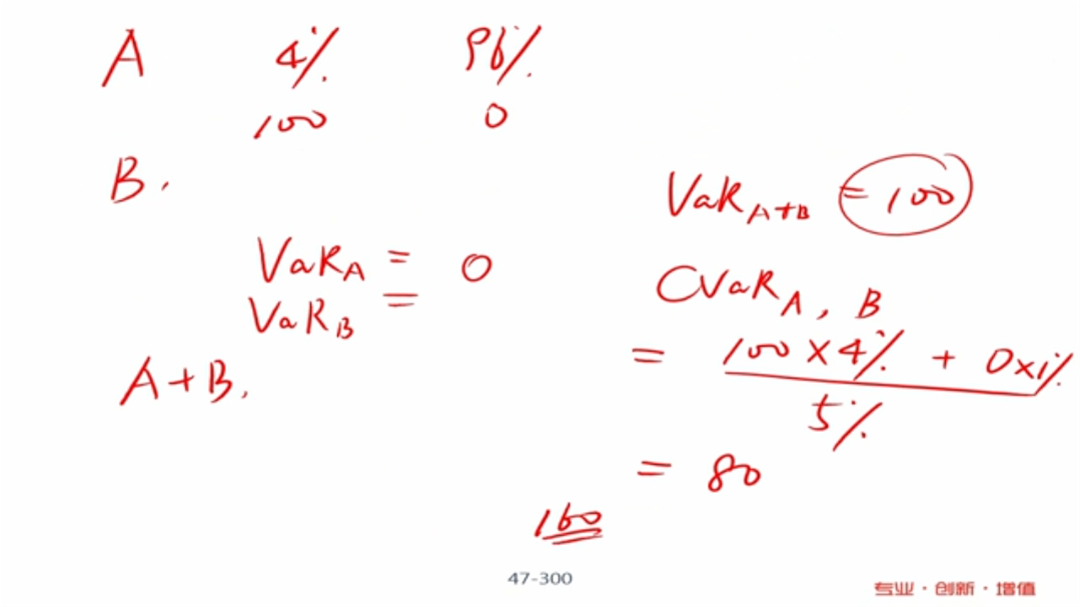 A 4% 96%
100 0
B.
VaR_A = 0
VaR_B =
A+B.
VaR_A+B = 100
CVaR_A, B
= 100×4% + 0×1%
5%
= 80
160
47-300
专业·创新·增值